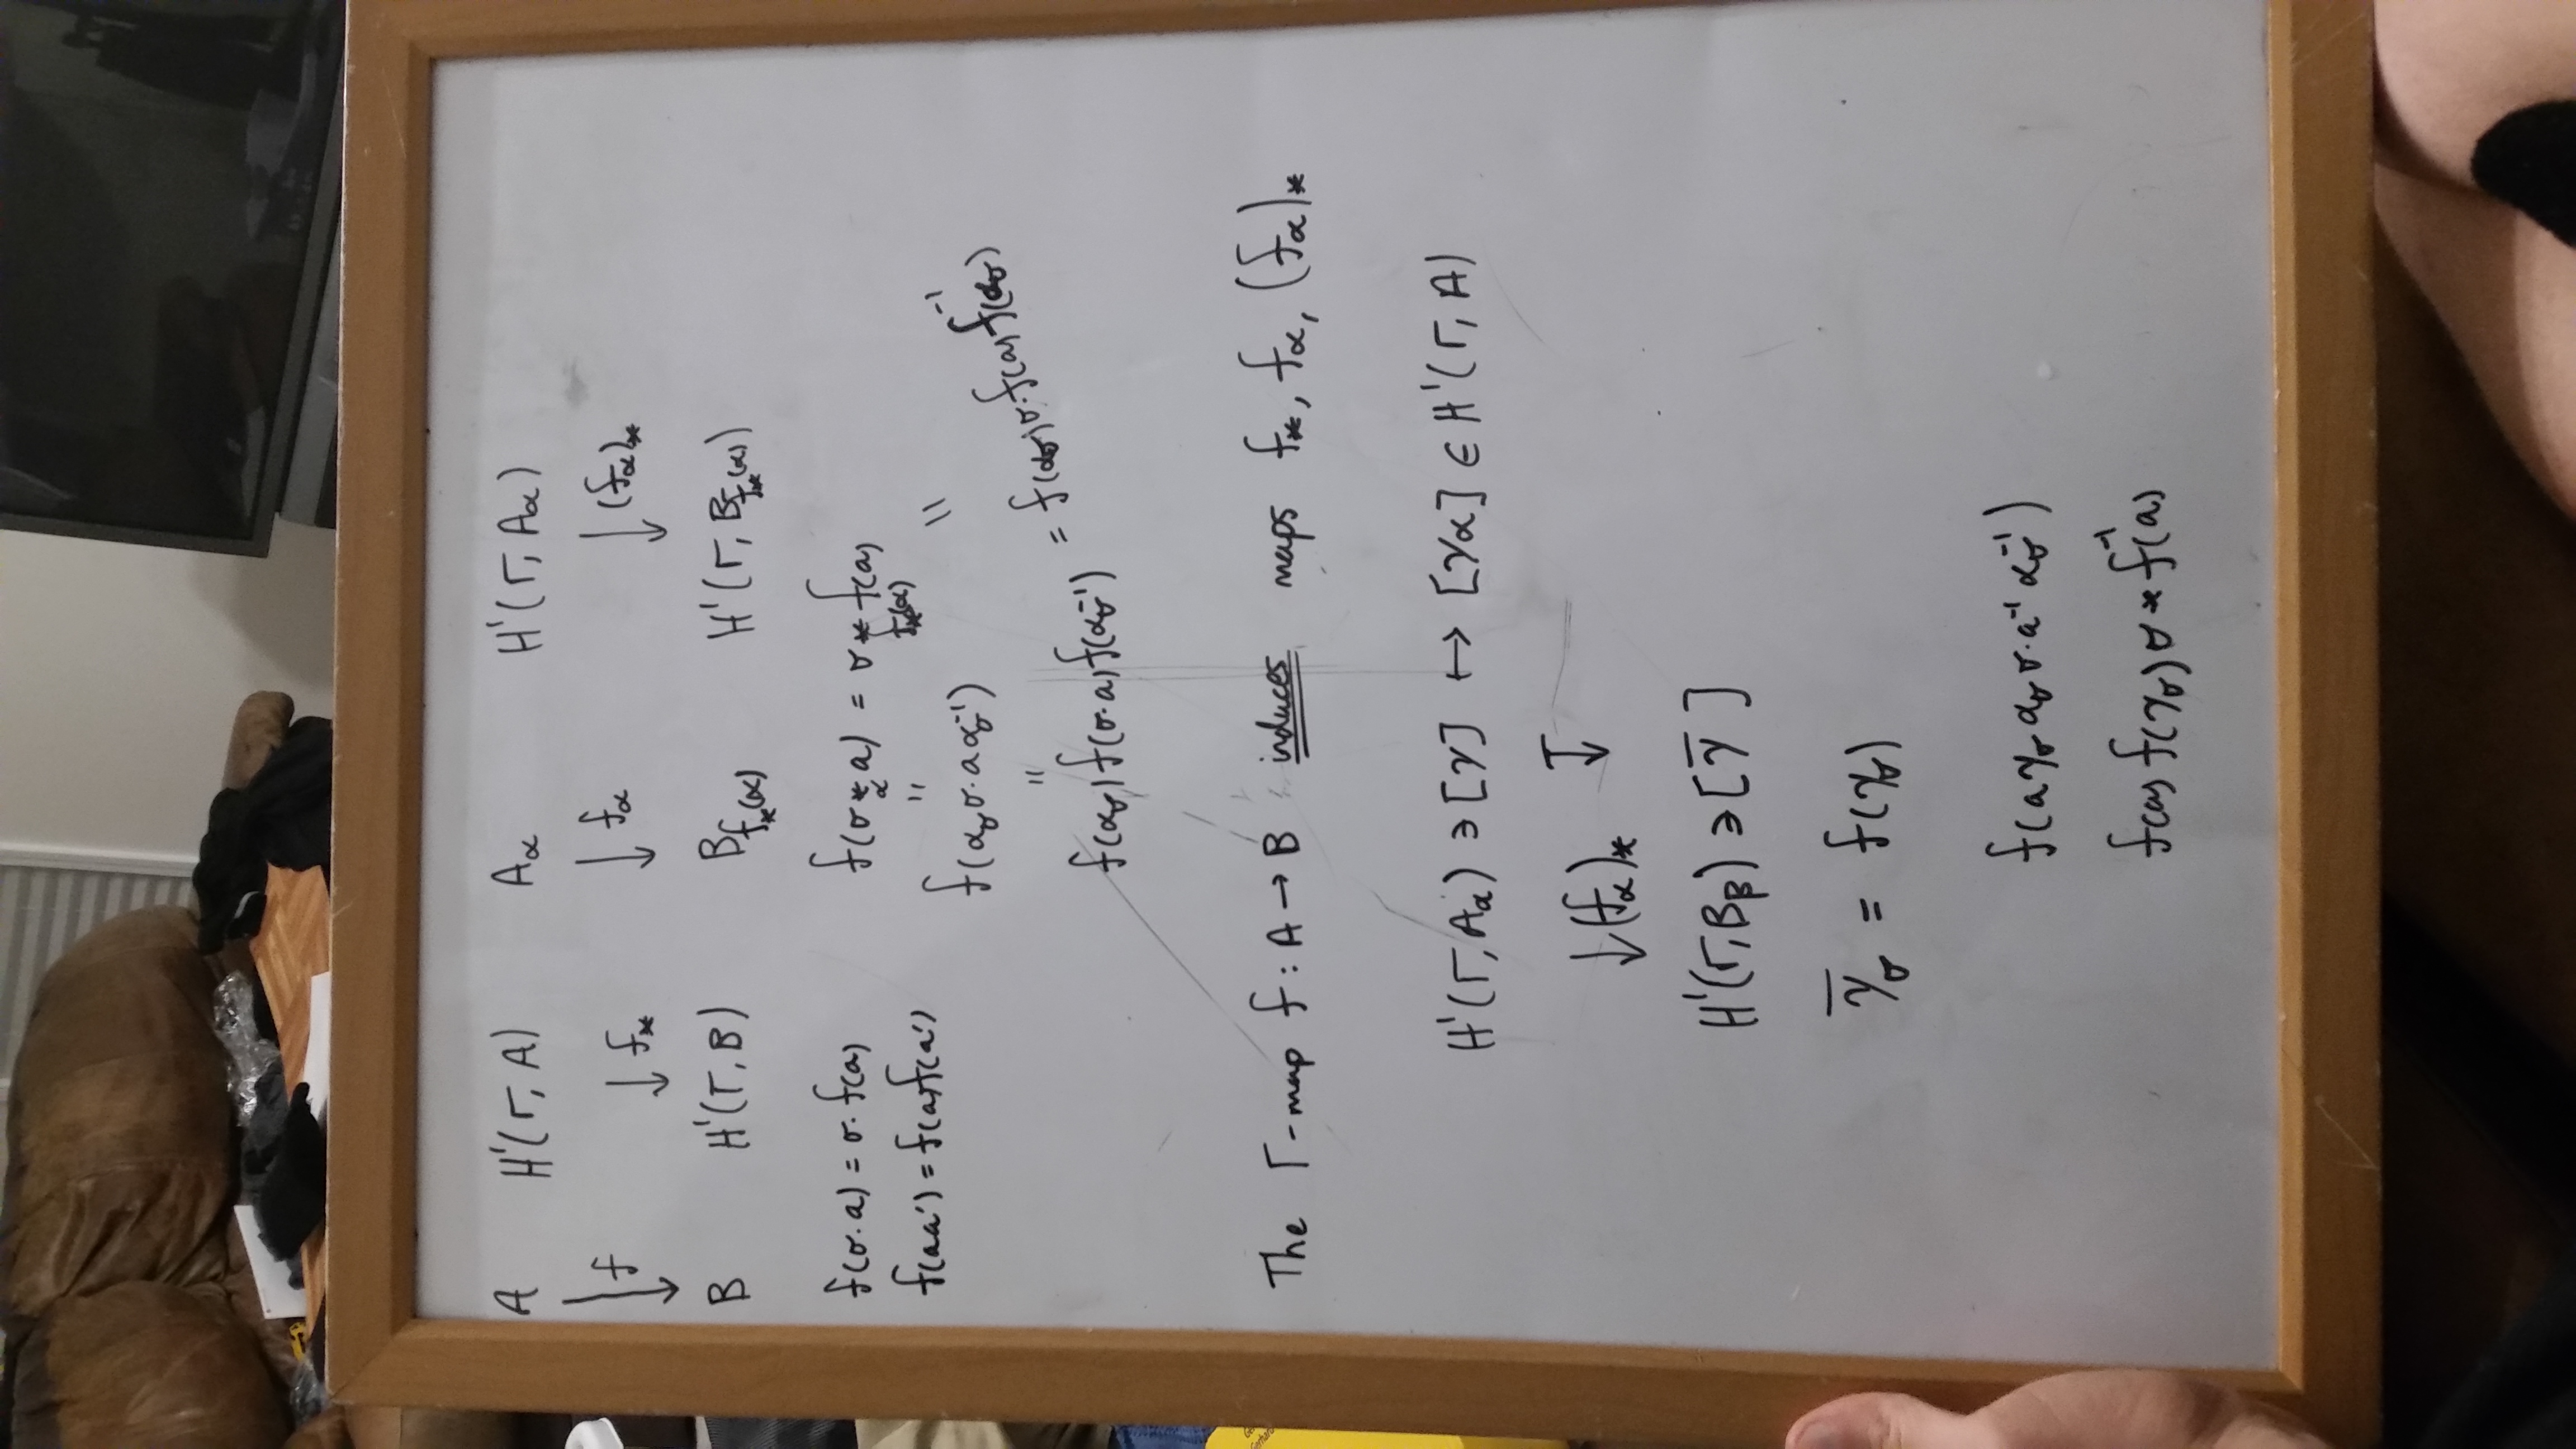 A H'(Γ, A) A_α H'(Γ, A_α)
↓ f ↓ f_* ↓ f_α ↓ (f_α)_*
B H'(Γ, B) B_{f_*(α)} H'(Γ, B_{f_*(α)})
f(σ·a) = σ·f(a) f(σ *_α a) = σ *_{f_*(α)} f(a)
f(aa') = f(a)f(a') " \\
f(α_σ σ·a α_σ^{-1})
"
f(α_σ) f(σ·a) f(α_σ^{-1}) = f(α_σ) σ·f(a) f^{-1}(α_σ)
The Γ-map f : A → B induces maps f_*, f_α, (f_α)_*
H'(Γ, A_α) ∋ [γ] ↦ [γα] ∈ H'(Γ, A)
↓ (f_α)_* ↧
H'(Γ, B_β) ∋ [γ̄ ]
γ̄_σ = f(γ_σ)
f(a γ_σ α_σ σ·a^{-1} α_σ^{-1})
f(a) f(γ_σ) σ * f^{-1}(a)